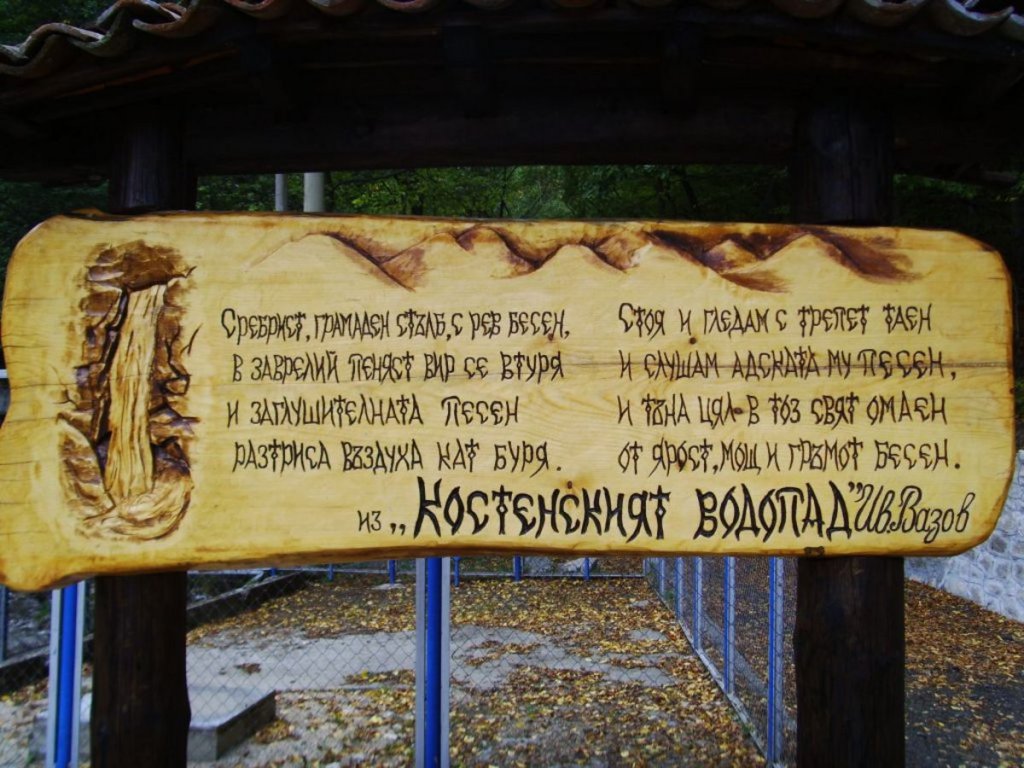 Сребрист, грамаден стълб, с рев бесен,
в заврелий пеняст вир се втуря
и заглушителната песен
разтриса въздуха кат буря.
Стоя и гледам с трепет таен
и слушам адската му песен,
и тъна цял в тоз свят омаен
от ярост, мощ и гръмот бесен.
из „Костенският водопад" Ив. Вазов